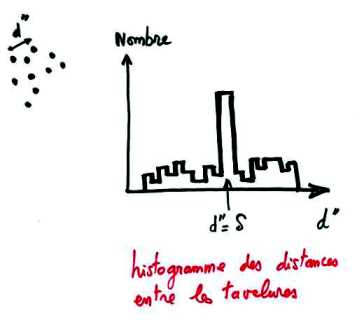 d"
Nombre
d" = δ
d"
histogramme des distances
entre les tavelures